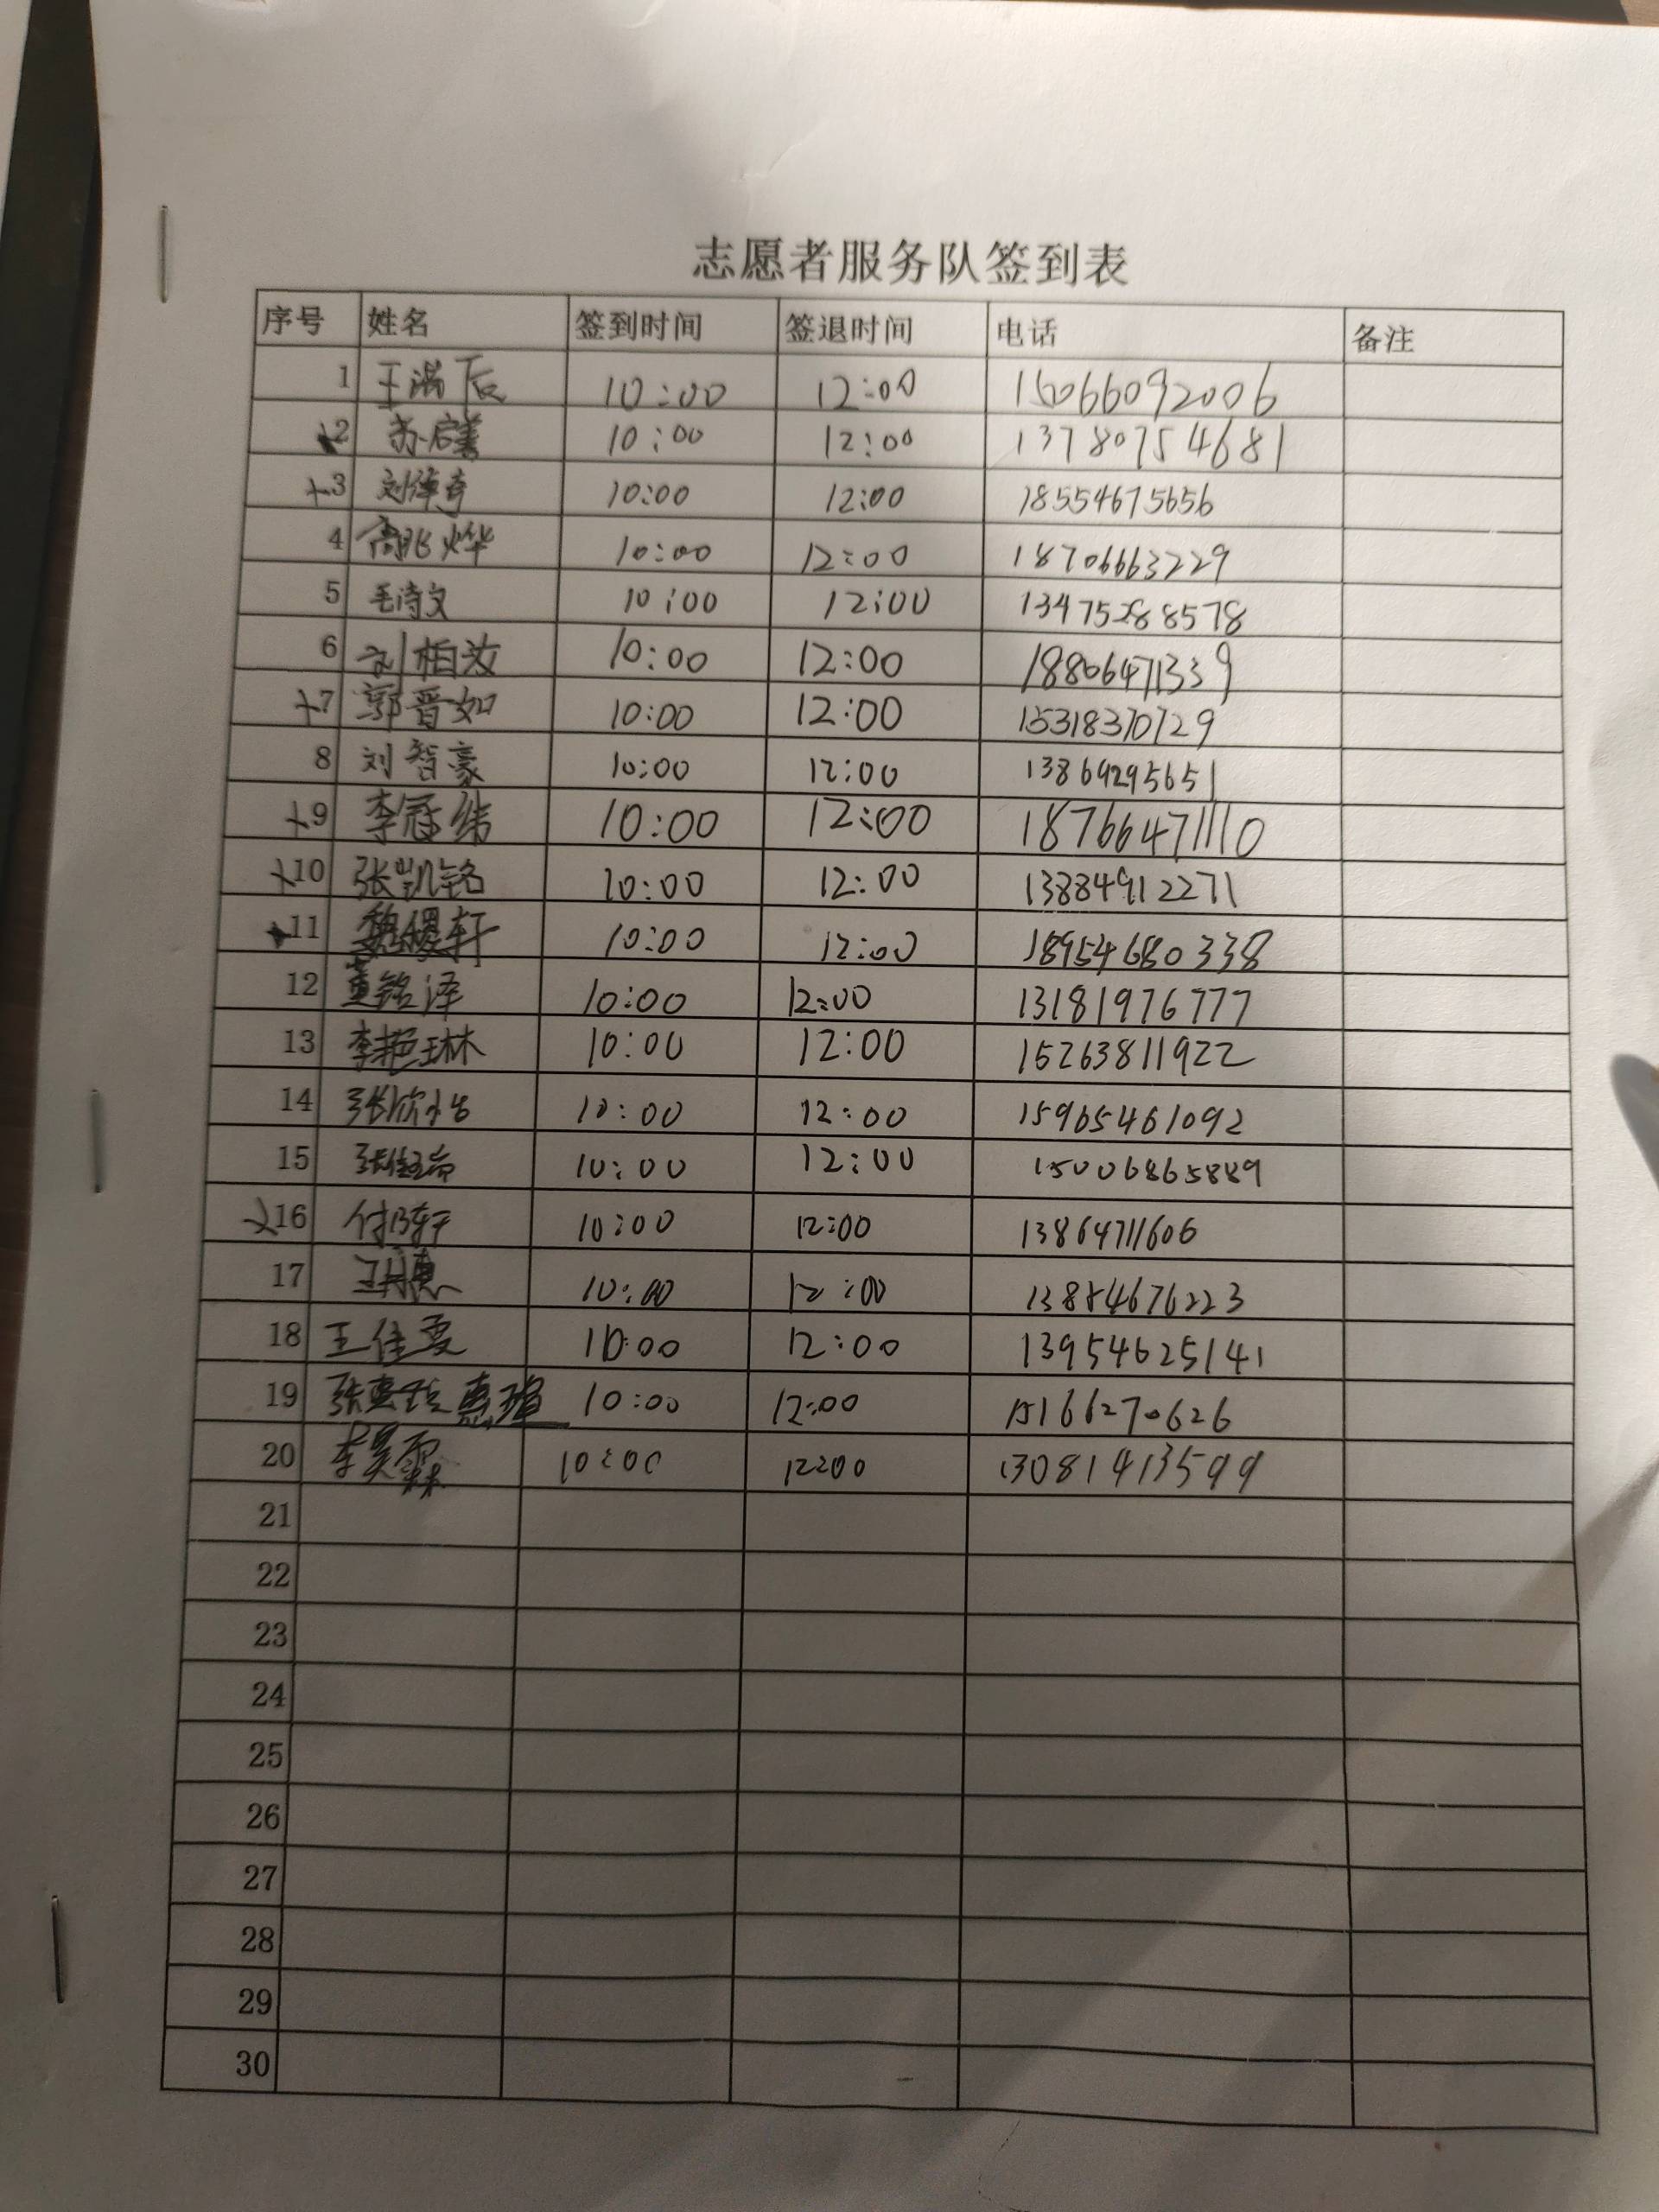 志愿者服务队签到表
序号 姓名 签到时间 签退时间 电话 备注
1 王 10:00 12:00 16066092006
2 苏启 10:00 12:00 13780754681
3 刘 10:00 12:00 18554675656
4 高兆烨 10:00 12:00 18706663229
5 毛诗文 10:00 12:00 13475288578
6 刘柏汝 10:00 12:00 18806471339
7 郭晋如 10:00 12:00 15318370729
8 刘智豪 10:00 12:00 13864295651
9 李冠纬 10:00 12:00 18766471110
10 张凯铭 10:00 12:00 13884912271
11 魏稷轩 10:00 12:00 18954680338
12 董铭泽 10:00 12:00 13181976777
13 李艳琳 10:00 12:00 15263811922
14 张欣 10:00 12:00 15965461092
15 张 10:00 12:00 15006865889
16 付 轩 10:00 12:00 13864711606
17 王 10:00 12:00 13884676223
18 王佳雯 10:00 12:00 13954625141
19 张惠 10:00 12:00 15166270626
20 李昊霖 10:00 12:00 13081413599
21
22
23
24
25
26
27
28
29
30